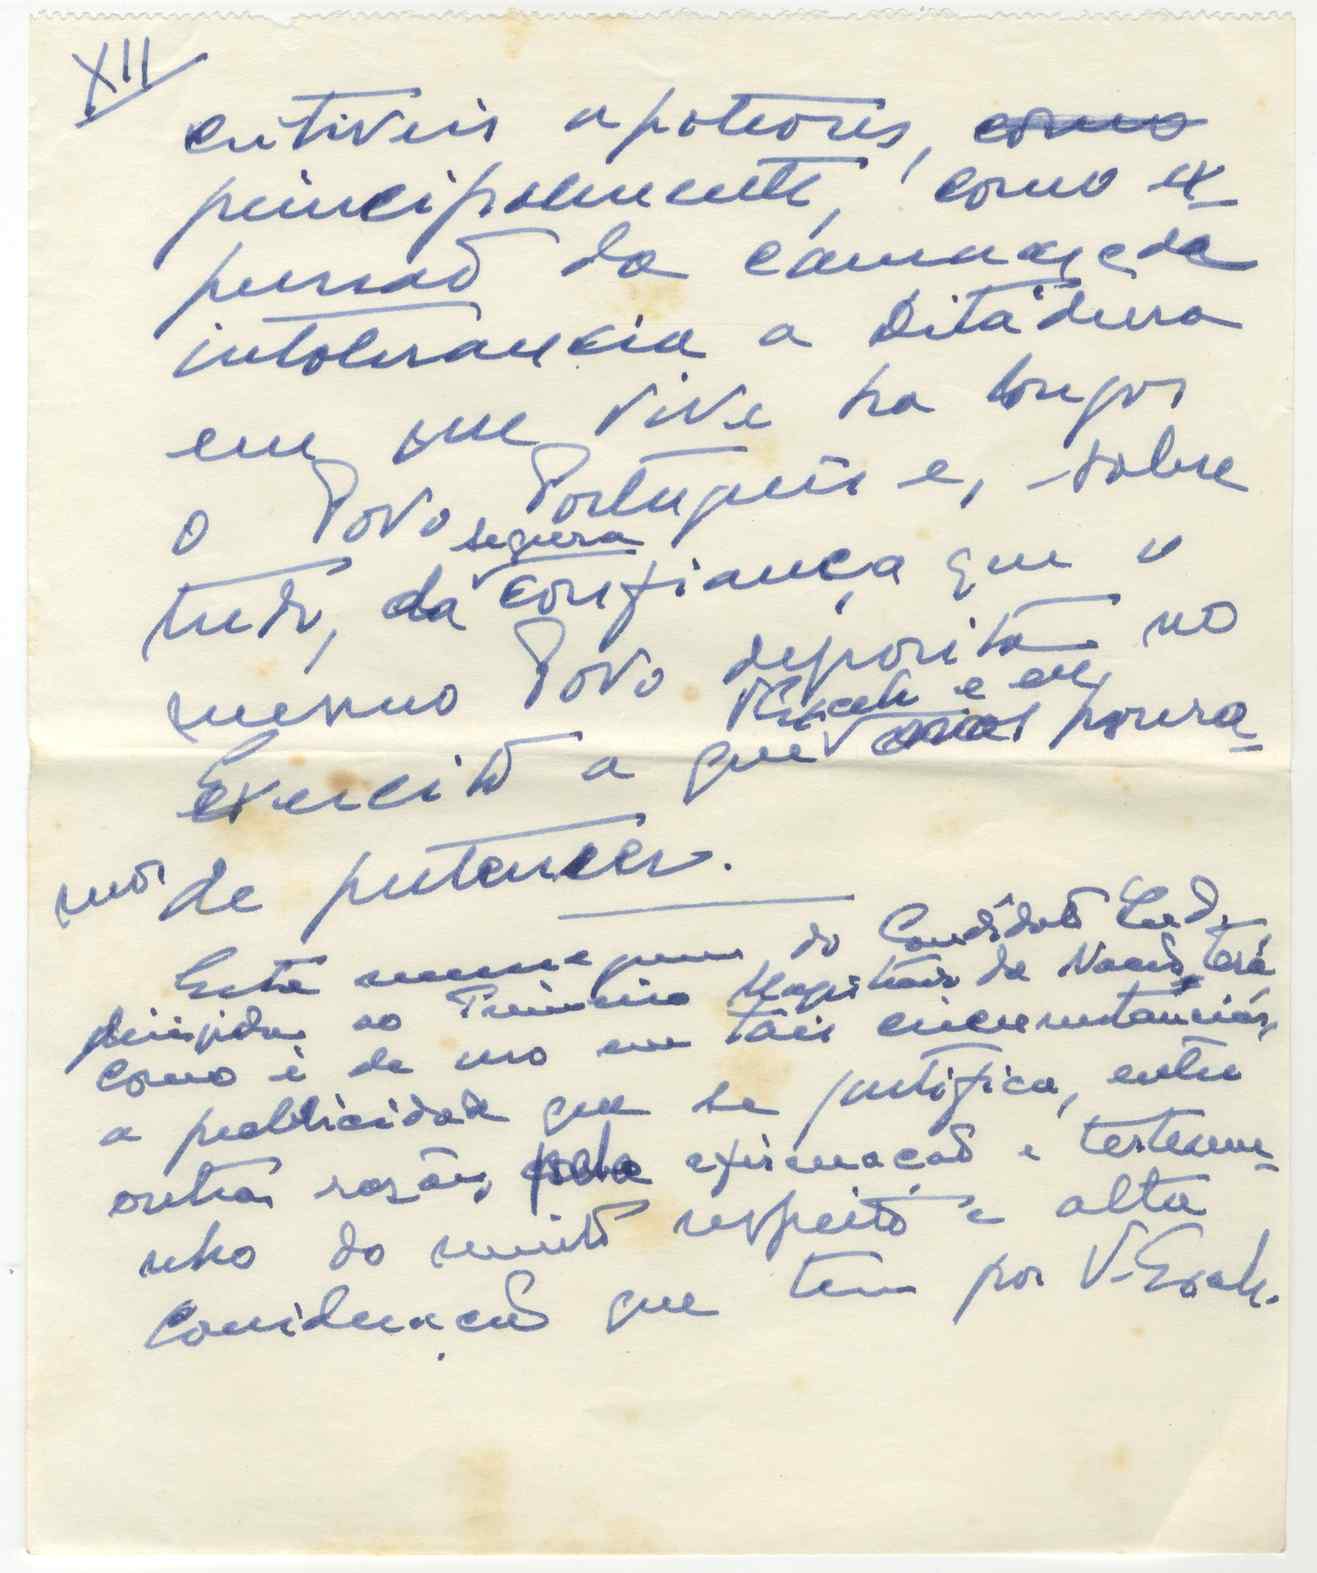 XII
apoteoses, como
principalmente, como ex-
pressão da cansaço e da
intolerancia a Ditadura
em que vive ha longos
o Povo Português e, sobre
tudo, da segura confiança que o
mesmo Povo deposita no
Exercito a que V. Excelª e eu, honra-
mos de pertencer.
Esta mensagem do Candidato
dirigida ao Primeiro Magistrado da Nação, terá
como é de uso em tais circunstancias,
a publicidade que se justifica, entre
outras razões, pela afirmação e testemu-
nho do muito respeito e alta
consideração que tem por V. Excelª.